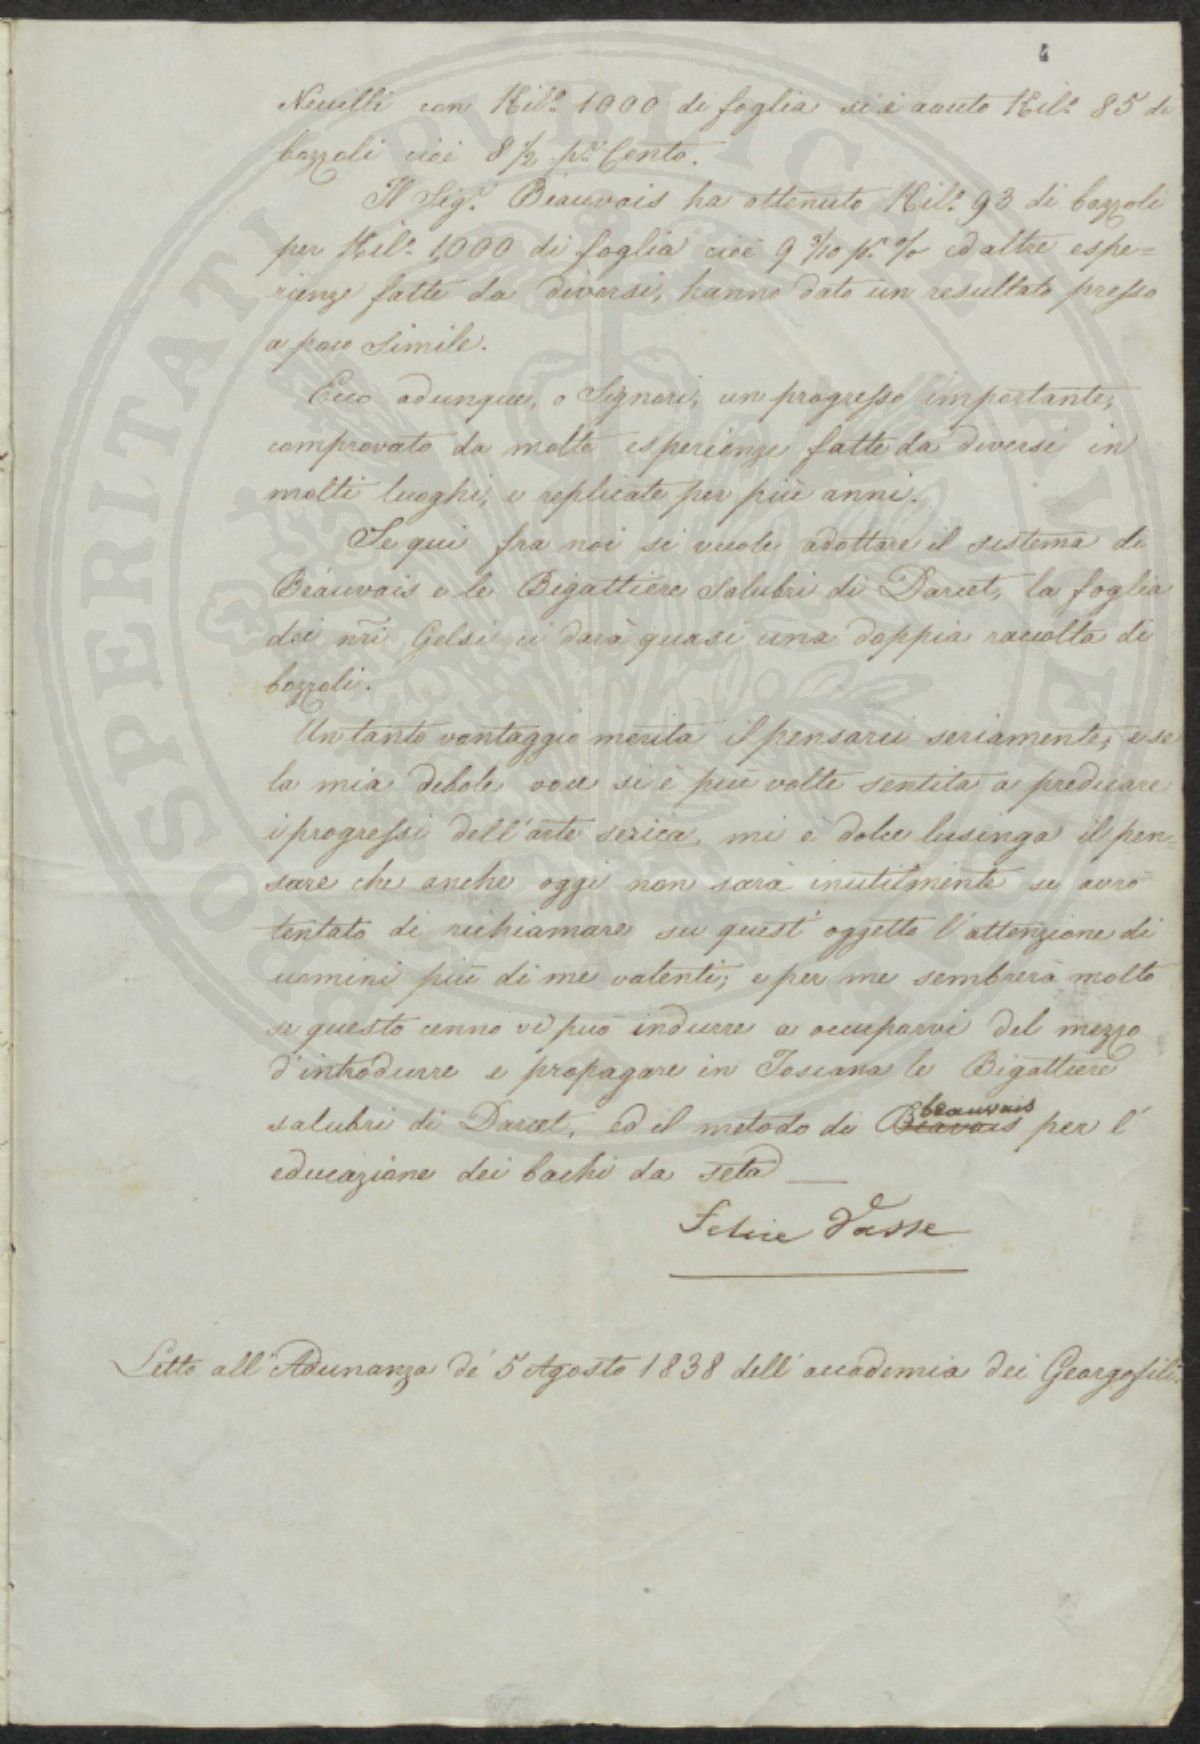 4
Neuilli con Kil.º 1000 di foglia si è avuto Kil.º 85 di
bozzoli cioè 8 1/2 p.r Cento.
Il Sig.r Béauvais ha ottenuto Kil.º 93 di bozzoli
per Kil.º 1,000 di foglia cioè 9 3/10 p.r % ed altre espe=
rienze fatte da diversi, hanno dato un resultato presso
a poco simile.
Ecco adunque, o Signori, un progresso importante,
comprovato da molte esperienze fatte da diversi in
molti luoghi, e replicate per più anni.
Se qui fra noi si vuole adottare il sistema di
Béauvais e le Bigattiere salubri di Darcet, la foglia
dei nr̃i Gelsi ci darà quasi una doppia raccolta di
bozzoli.
Un tanto vantaggio merita il pensarci seriamente, e se
la mia debole voce si è più volte sentita a predicare
i progressi dell'arte serica, mi è dolce lusinga il pen=
sare che anche oggi non sarà inutilmente se avrò
tentato di richiamare su quest'oggetto l'attenzione di
uomini più di me valenti; e per me sembrerà molto
se questo cenno vi può indurre a occuparvi del mezzo
d'introdurre e propagare in Toscana le Bigattiere
salubri di Darcet, ed il metodo di Beavais beauvais per l'
educazione dei bachi da seta
Felice Vasse
Letto all'Adunanza de' 5 Agosto 1838 dell'accademia dei Georgofili
PROSPERITATI PVBLICAE